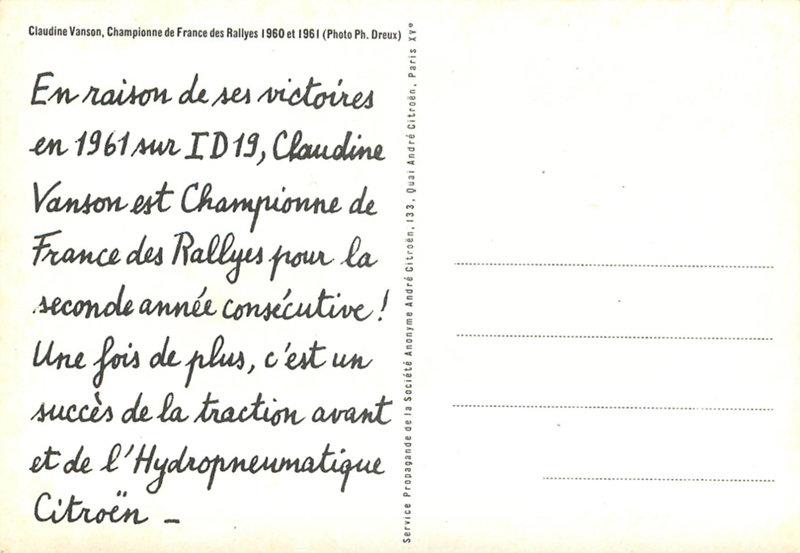 Claudine Vanson, Championne de France des Rallyes 1960 et 1961 (Photo Ph. Dreux)
En raison de ses victoires
en 1961 sur ID19, Claudine
Vanson est Championne de
France des Rallyes pour la
seconde année consécutive !
Une fois de plus, c'est un
succès de la traction avant
et de l'Hydropneumatique
Citroën _
Service Propagande de la Société Anonyme André Citroën, 133, Quai André Citroën, Paris XVe